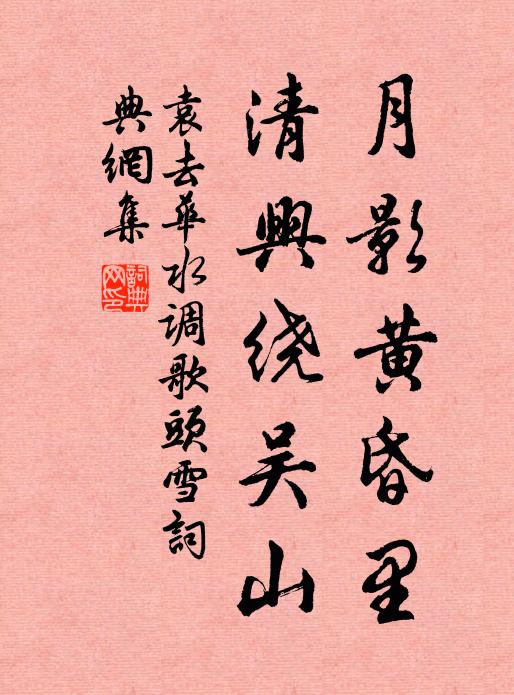 月影黄昏里
清興绕吴山
袁去華水调歌頭雪詞
典網集
詞典網印